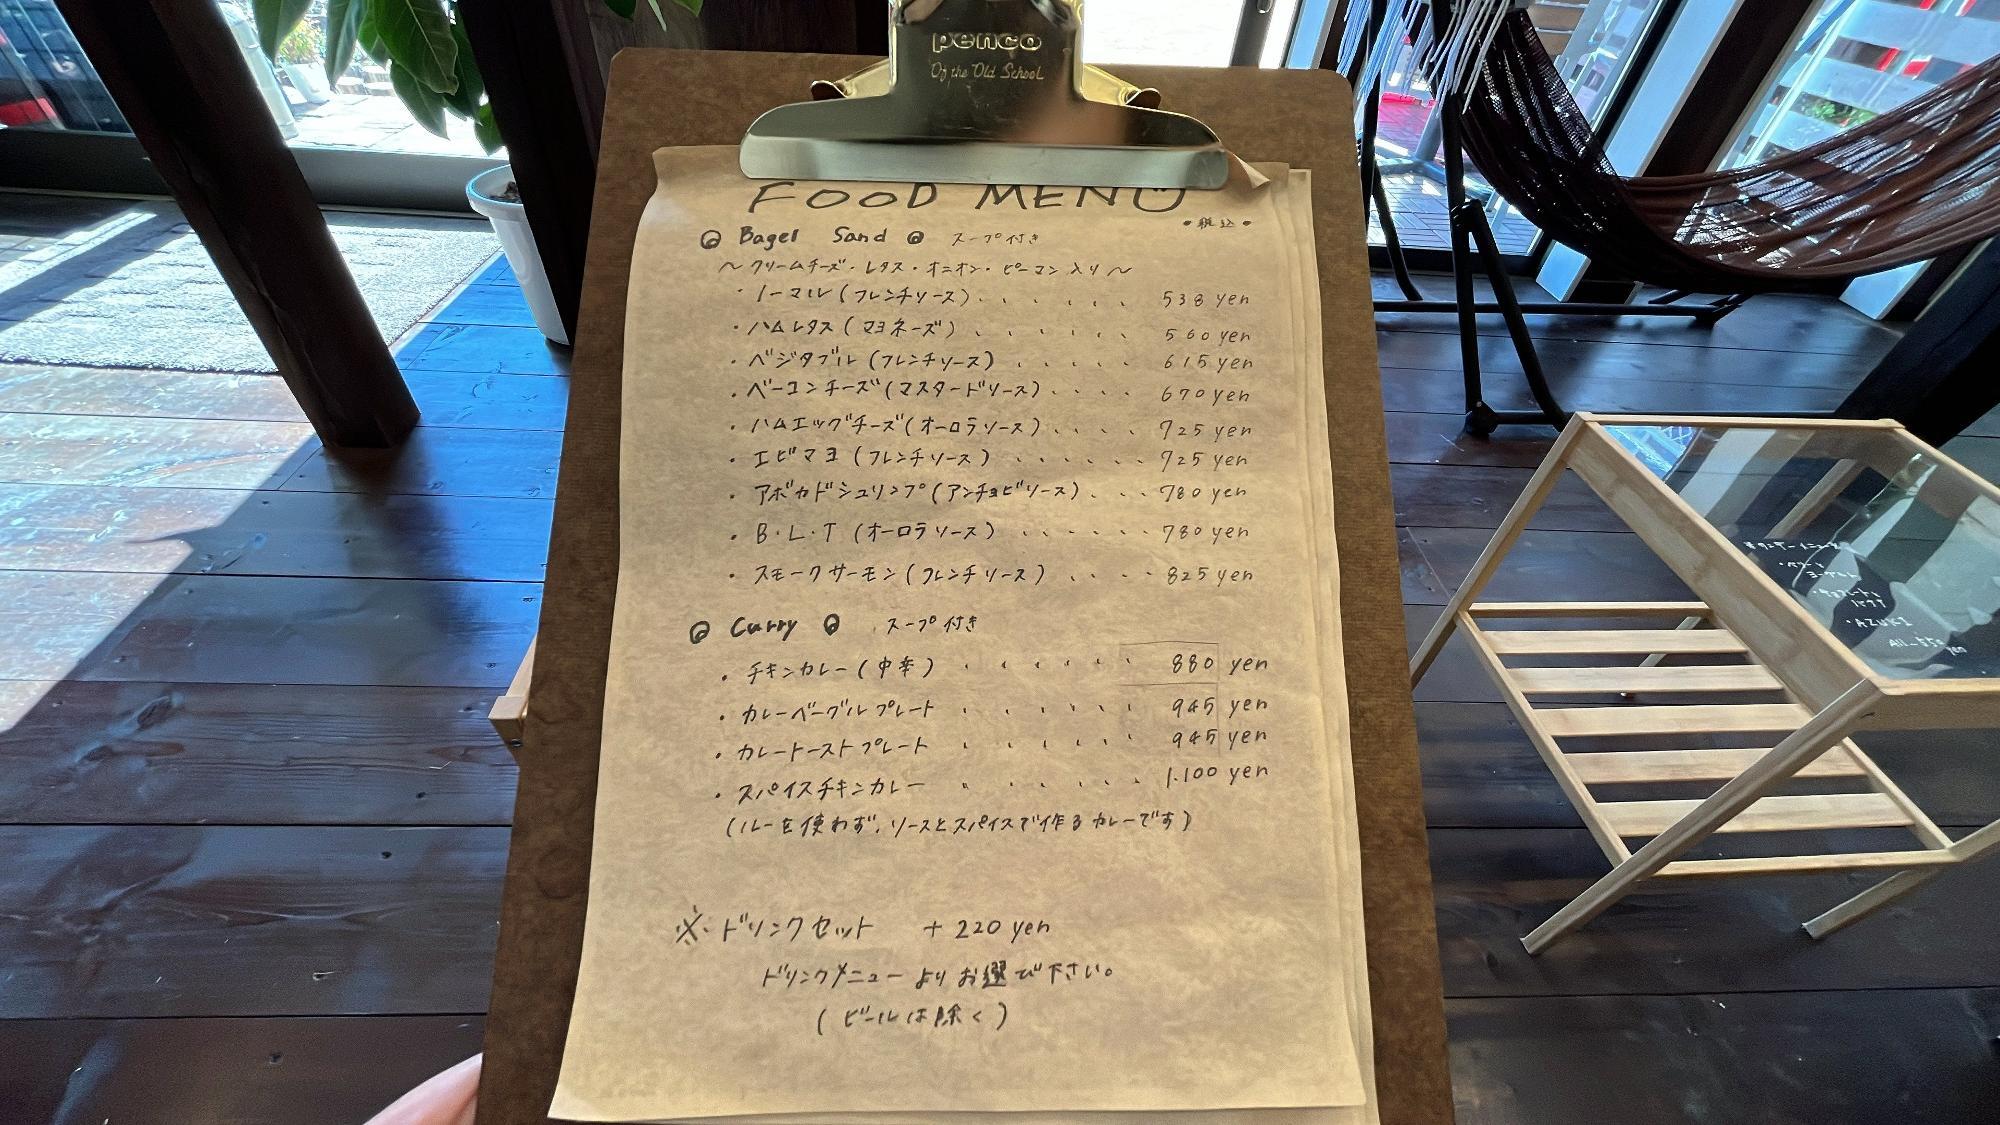 penco
Of the Old School
FOOD MENU
・税込・
Bagel Sand スープ付き
〜クリームチーズ・レタス・オニオン・ピーマン入り〜
・ノーマル(フレンチソース)・・・・・・ 538 yen
・ハムレタス(マヨネーズ)・・・・・・ 560 yen
・ベジタブル(フレンチソース)・・・・・ 615 yen
・ベーコンチーズ(マスタードソース)・・・・ 670 yen
・ハムエッグチーズ(オーロラソース)・・・・ 725 yen
・エビマヨ(フレンチソース)・・・・・・ 725 yen
・アボカドシュリンプ(アンチョビソース)・・・ 780 yen
・B・L・T(オーロラソース)・・・・・・ 780 yen
・スモークサーモン(フレンチソース)・・・・ 825 yen
Curry スープ付き
・チキンカレー(中辛)・・・・・・ 880 yen
・カレーベーグルプレート・・・・・・ 945 yen
・カレートーストプレート・・・・・・ 945 yen
・スパイスチキンカレー・・・・・・ 1.100 yen
(ルーを使わず、ソースとスパイスで作るカレーです)
※ドリンクセット +220 yen
ドリンクメニューよりお選び下さい。
(ビールは除く)
・AZUKI
All 550 yen